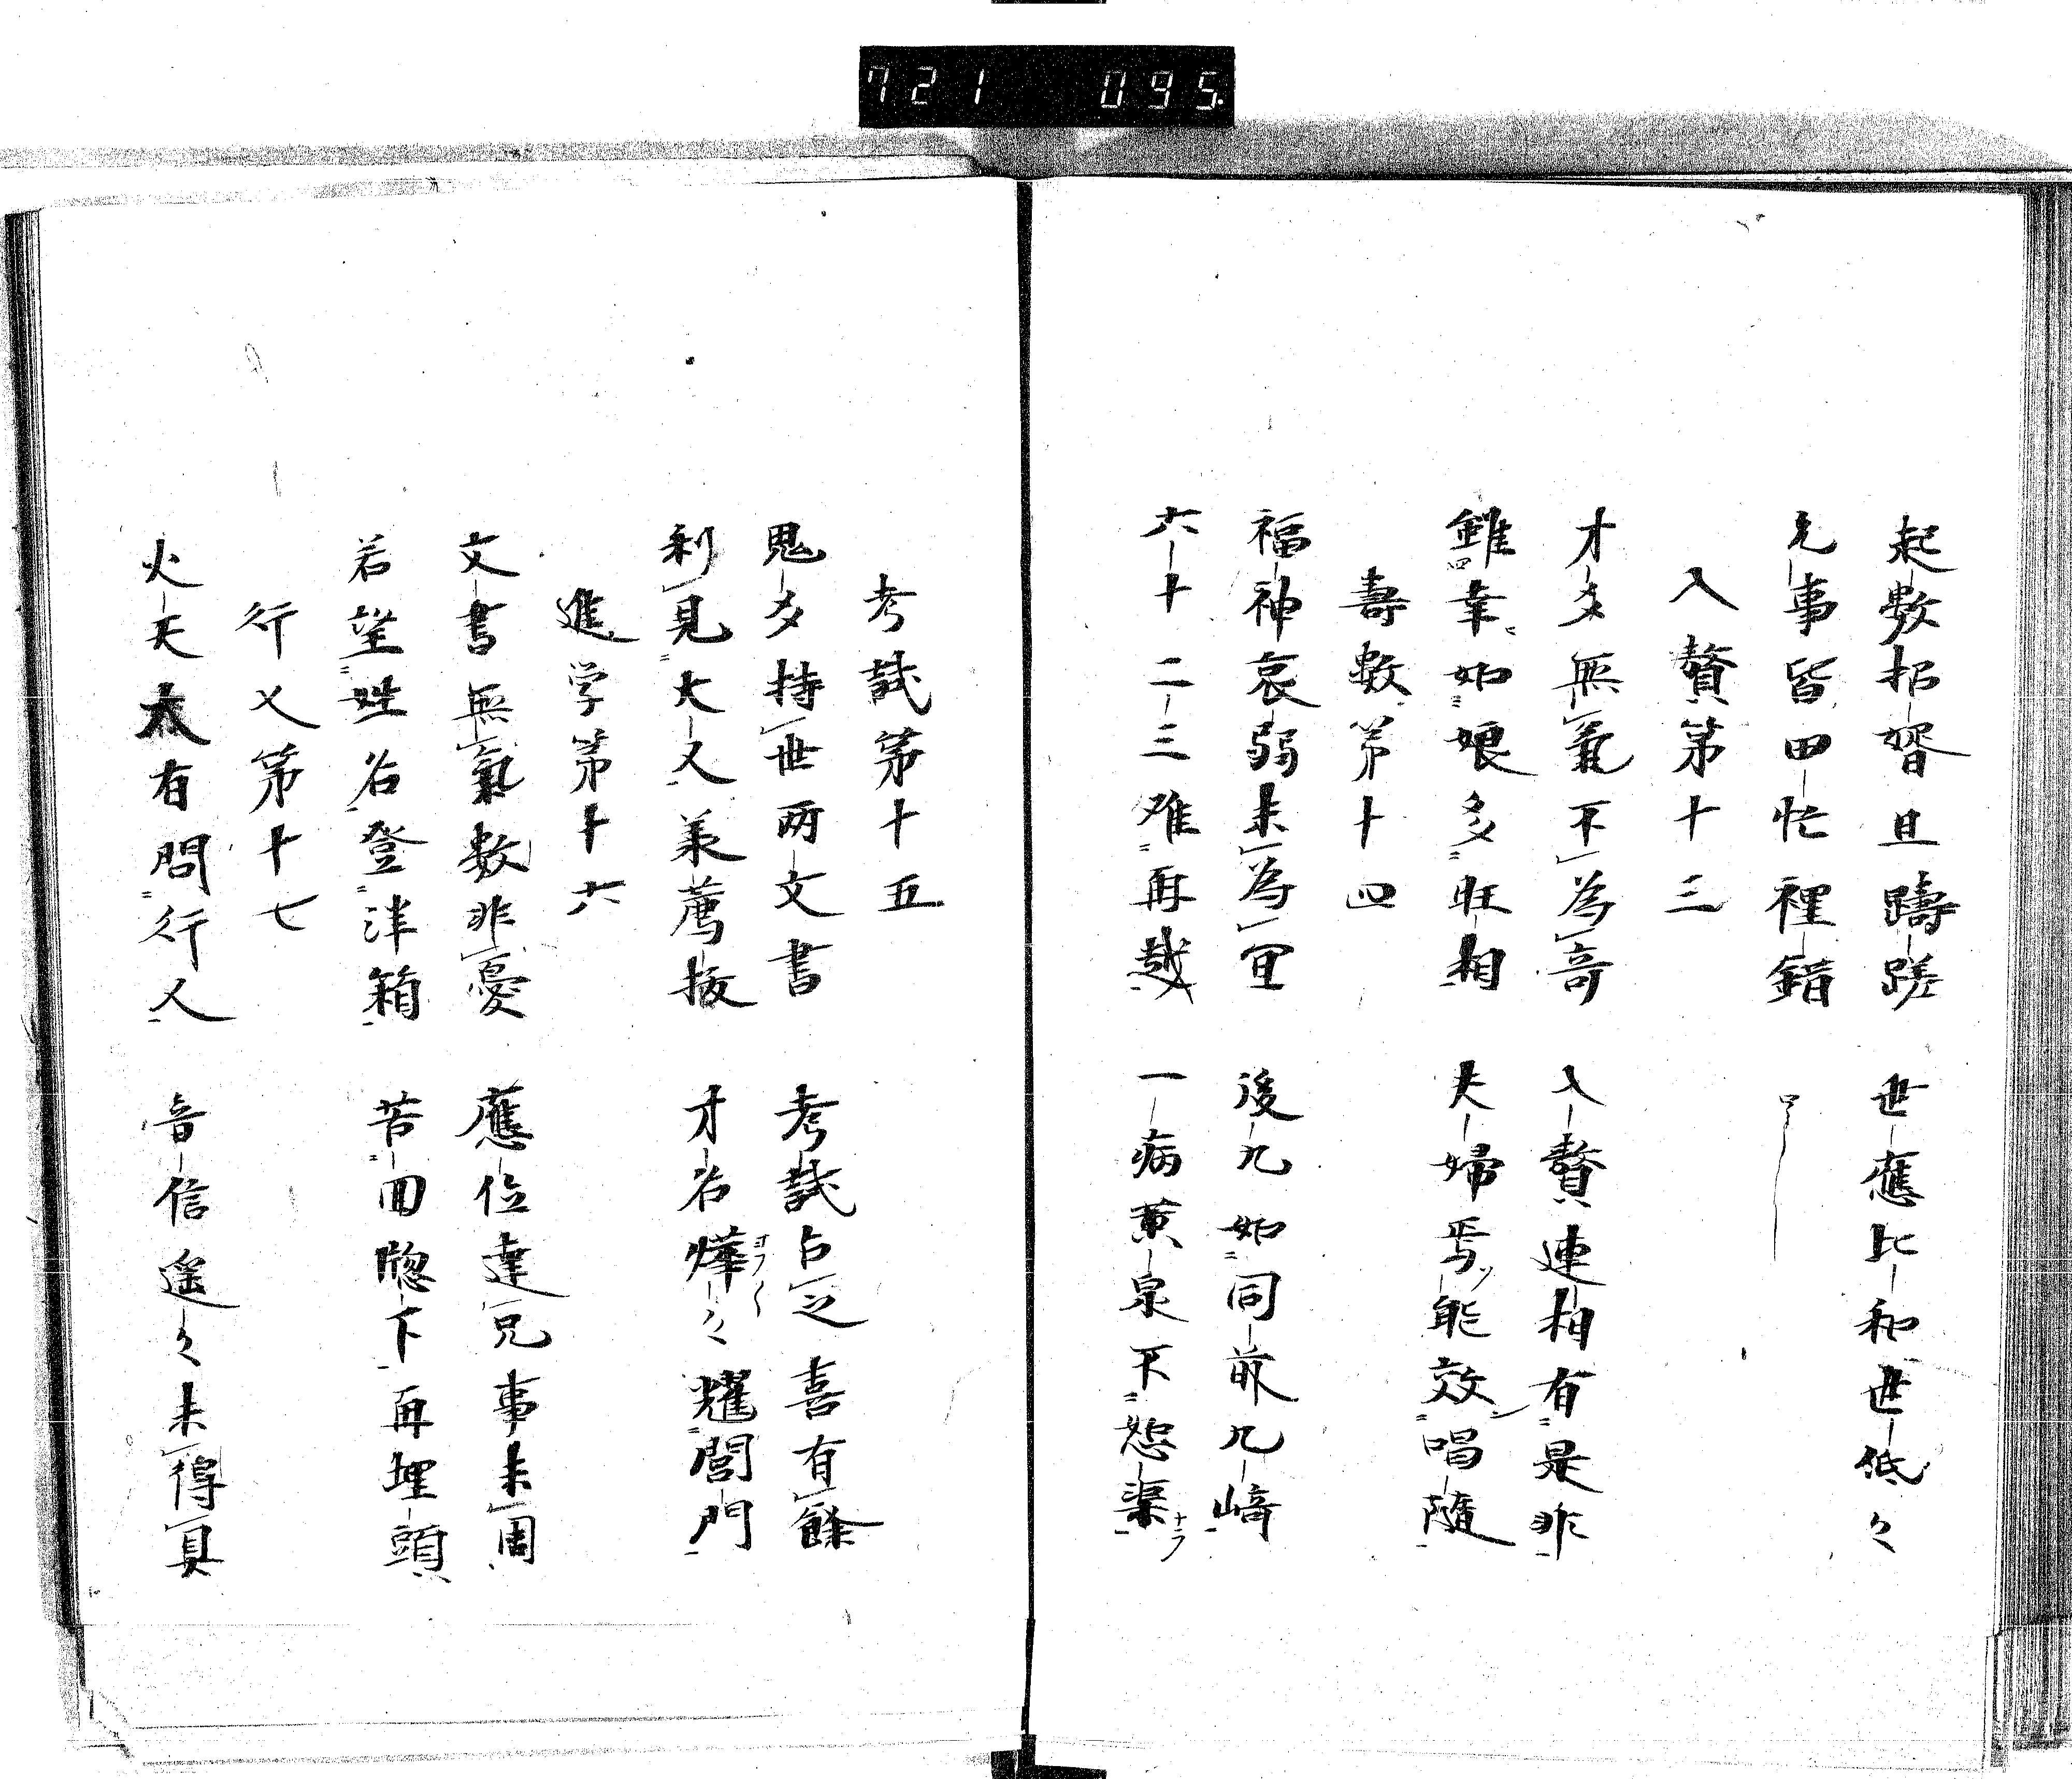 721 095.
起數招婿且躊蹉 世應比和世低々
兄事皆由忙裡錯
入贅第十三
才多無氣不為奇 入贅連相有是非
雖幸如娘多旺相 夫婦焉ソ能效唱隨
壽數第十四
福神哀弱未為宜 後九如同前九﨑
六十二三难再越 一病黄泉不恕渠ナフ
考試第十五
鬼多持世兩文書 考試占之喜有餘
利見大人兼薦拔 才名燁々耀閭門
進学第十六
文書無氣數非憂 應位達兄事未周
若望姓名登泮籍 苦回聰下再埋頭
行人第十七
火天太有問行人 音信遥々未得真